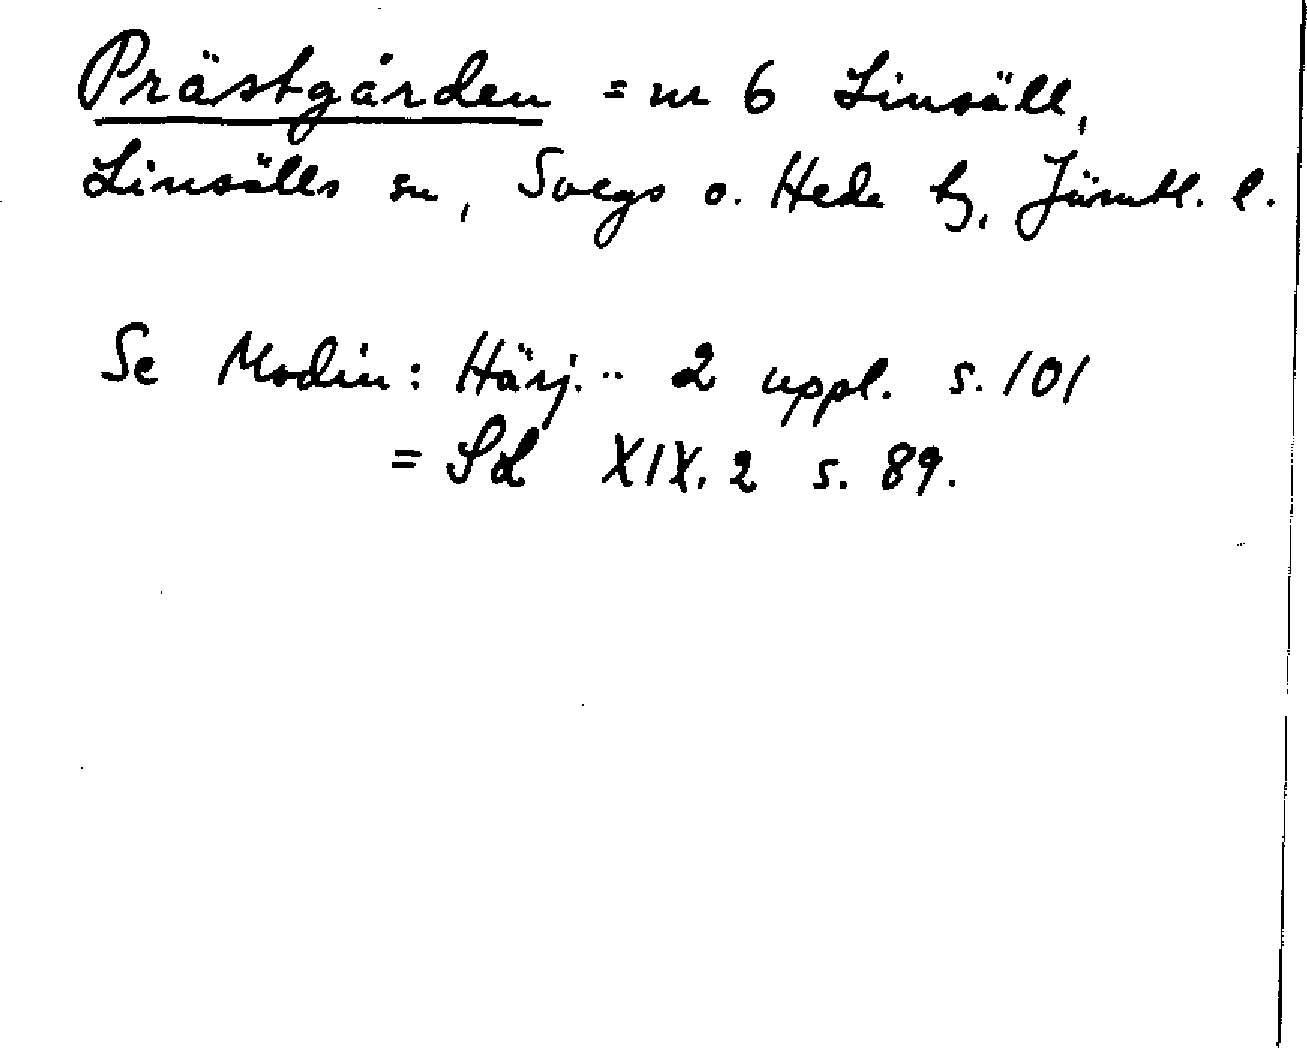 Prästgården = nr 6 Linsäll,
Linsälls sn, Svegs o. Hede tg, Jämtl. l.
Se Modin: Härj. .. 2 uppl. s. 101
= SL XIX. 2 s. 89.